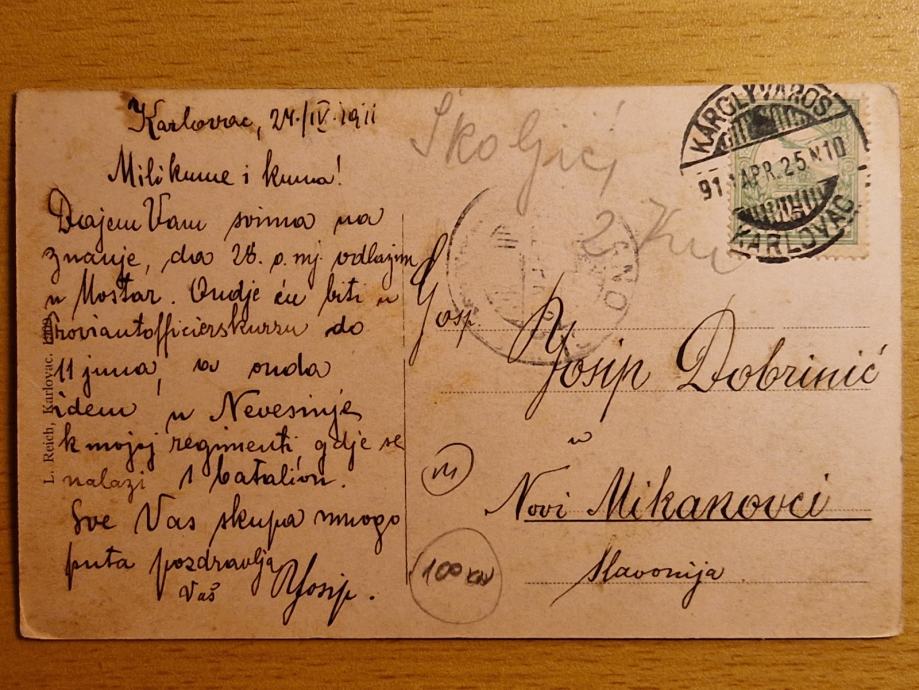 Karlovac, 24./IV. 1911
Mili kume i kuma!
Dajem Vam svima na
znanje, da 28. o. mj. odlazim
u Mostar. Ondje ću biti u
Proviantofficierskursu do
11 juna, a onda
idem u Nevesinje
k mojoj regimenti, gdje se
nalazi 1 batalion.
Sve Vas skupa mnogo
puta pozdravlja
Vaš Josip.
L. Reich, Karlovac.
Školjići
2 Kn
KÁROLYVÁROS
911 APR. 25 N10
KARLOVAC
Gosp.
Josip Dobrinić
u
Novi Mikanovci
Slavonija
M
100 KN